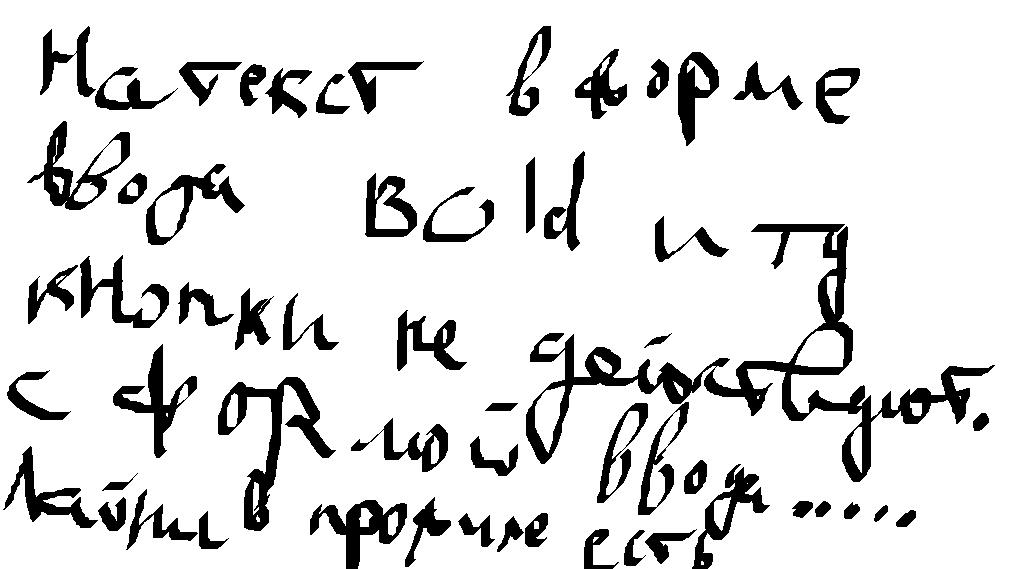 На текст в форме
ввода Bold и ту
кнопки не действуют.
с формой ввода.....
Лайны в профиле есть